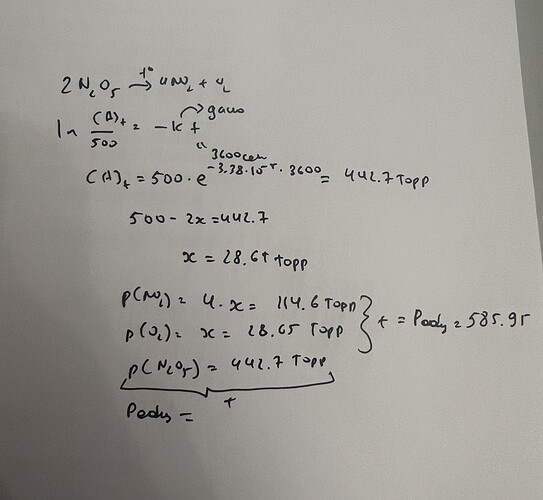 2 N₂O₅ →t° 4NO₂ + O₂
ln (A)t/500 = -kt
3600 сек
(A)t = 500 · e^(-3.38·10⁻⁵ · 3600) = 442.7 Торр
500 - 2x = 442.7
x = 28.65 Торр
p(NO₂) = 4 · x = 114.6 Торр
p(O₂) = x = 28.65 Торр } + = Pобщ = 585.95
p(N₂O₅) = 442.7 Торр
+
Pобщ =